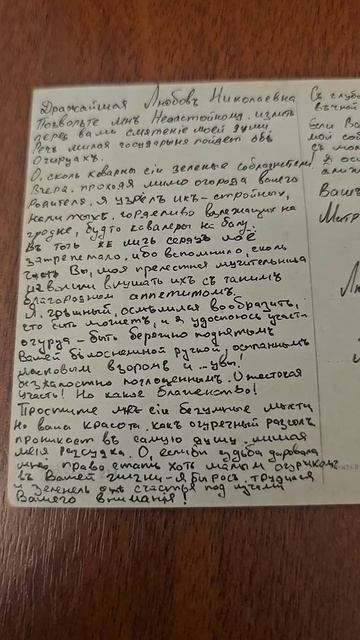 Дражайшая Любовъ Николаевна
Позвольте мнѣ Недостойному, излить
передъ вами смятение моей души.
Речь милая государыня пойдетъ объ
Огурцахъ.
О, сколь коварны сіи зеленые соблазнители
Вчера, проходя мимо огорода вашего
Родителя, я узрелъ ихъ - стройныхъ,
налитыхъ, горделиво возлежащихъ на
грядке, будто кавалеры на балу.
Въ тотъ же мигъ сердце моё
затрепетало, ибо вспомнило, сколь
Вы, моя прелестная мучительница
изволили вкушать ихъ съ такимъ
благороднымъ аппетитомъ.
Я, грѣшный, осмѣлился вообразить,
что быть можетъ, и я удостоюсь участи
огурца - быть бережно поднятымъ
Вашей бѣлоснежной ручкой, осыпаннымъ
ласковымъ взоромъ и ...увы!
безжалостно поглощеннымъ. О жестокая
участь! Но какое блаженство!
Простите мнѣ сіи безумные мечты
Но ваша красота, какъ огуречный разсолъ
проникаетъ въ самую душу, лишая
меня разсудка. О, еслибы судьба даровала
мнѣ право стать хоть малымъ огурцомъ
въ Вашей жизни - я бы росъ, трудился
и зеленелъ отъ счастья подъ лучами
Вашего внимания!
Съ
вѣчной
Если Ва
мой со
съ мо
я ос
Вашъ
Митр